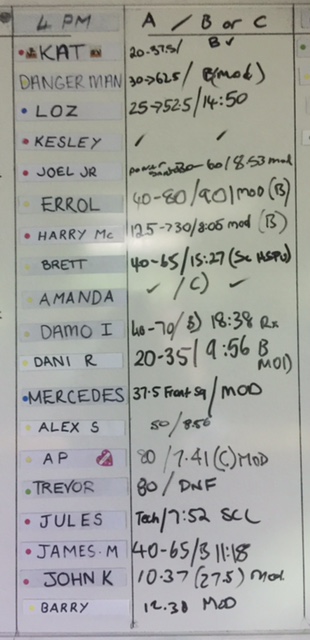 4 PM A / B or C
KAT 20-37.5/ B ✓
DANGERMAN 30→62.5 / B(mod)
LOZ 25→52.5/14:50
KESLEY ✓ ✓
JOEL JR 30-60/8.53 mod
ERROL 40-80/901 MOD (B)
HARRY Mc 12.5→30/8:05 mod (B)
BRETT 40-65/15:27 (Sc HSPU)
AMANDA ✓ / C) ✓
DAMO I 40-70/B) 18:38 Rx
DANI R 20-35/9:56 B MOD
MERCEDES 37.5 Front Sq / MOD
ALEX S 50/8:56
AP 80/7.41 (C) MOD
TREVOR 80/DNF
JULES Tech/7:52 SCL
JAMES.M 40-65/B 11:18
JOHN K 10.37 (27.5) Mod.
BARRY 12.38 MOD